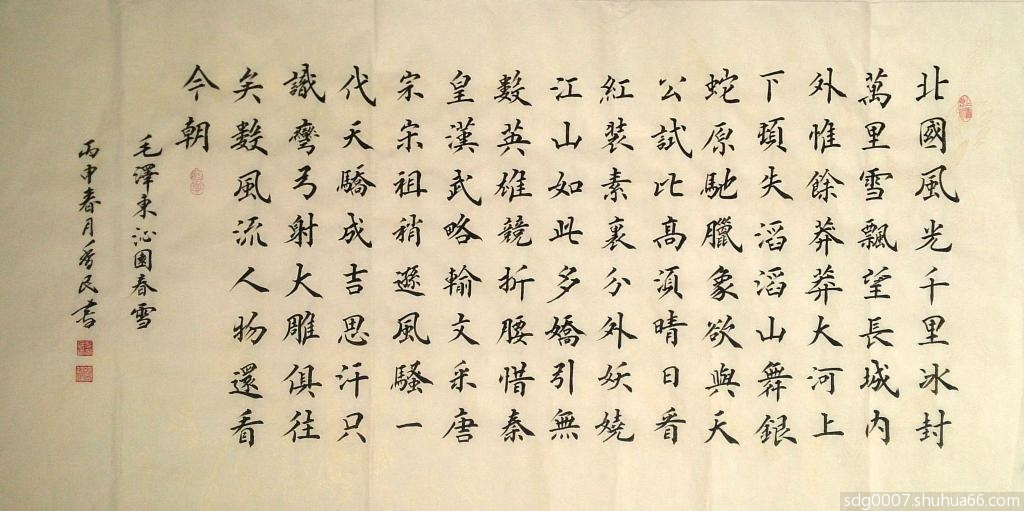 北國風光千里冰封
萬里雪飄望長城內
外惟餘莽莽大河上
下頓失滔滔山舞銀
蛇原馳臘象欲與天
公試比高須晴日看
紅裝素裹分外妖嬈
江山如此多嬌引無
數英雄競折腰惜秦
皇漢武略輸文采唐
宗宋祖稍遜風騷一
代天驕成吉思汗只
識彎弓射大雕俱往
矣數風流人物還看
今朝
毛澤東沁園春雪
丙申春月秀民書
sdg0007.shuhua66.com